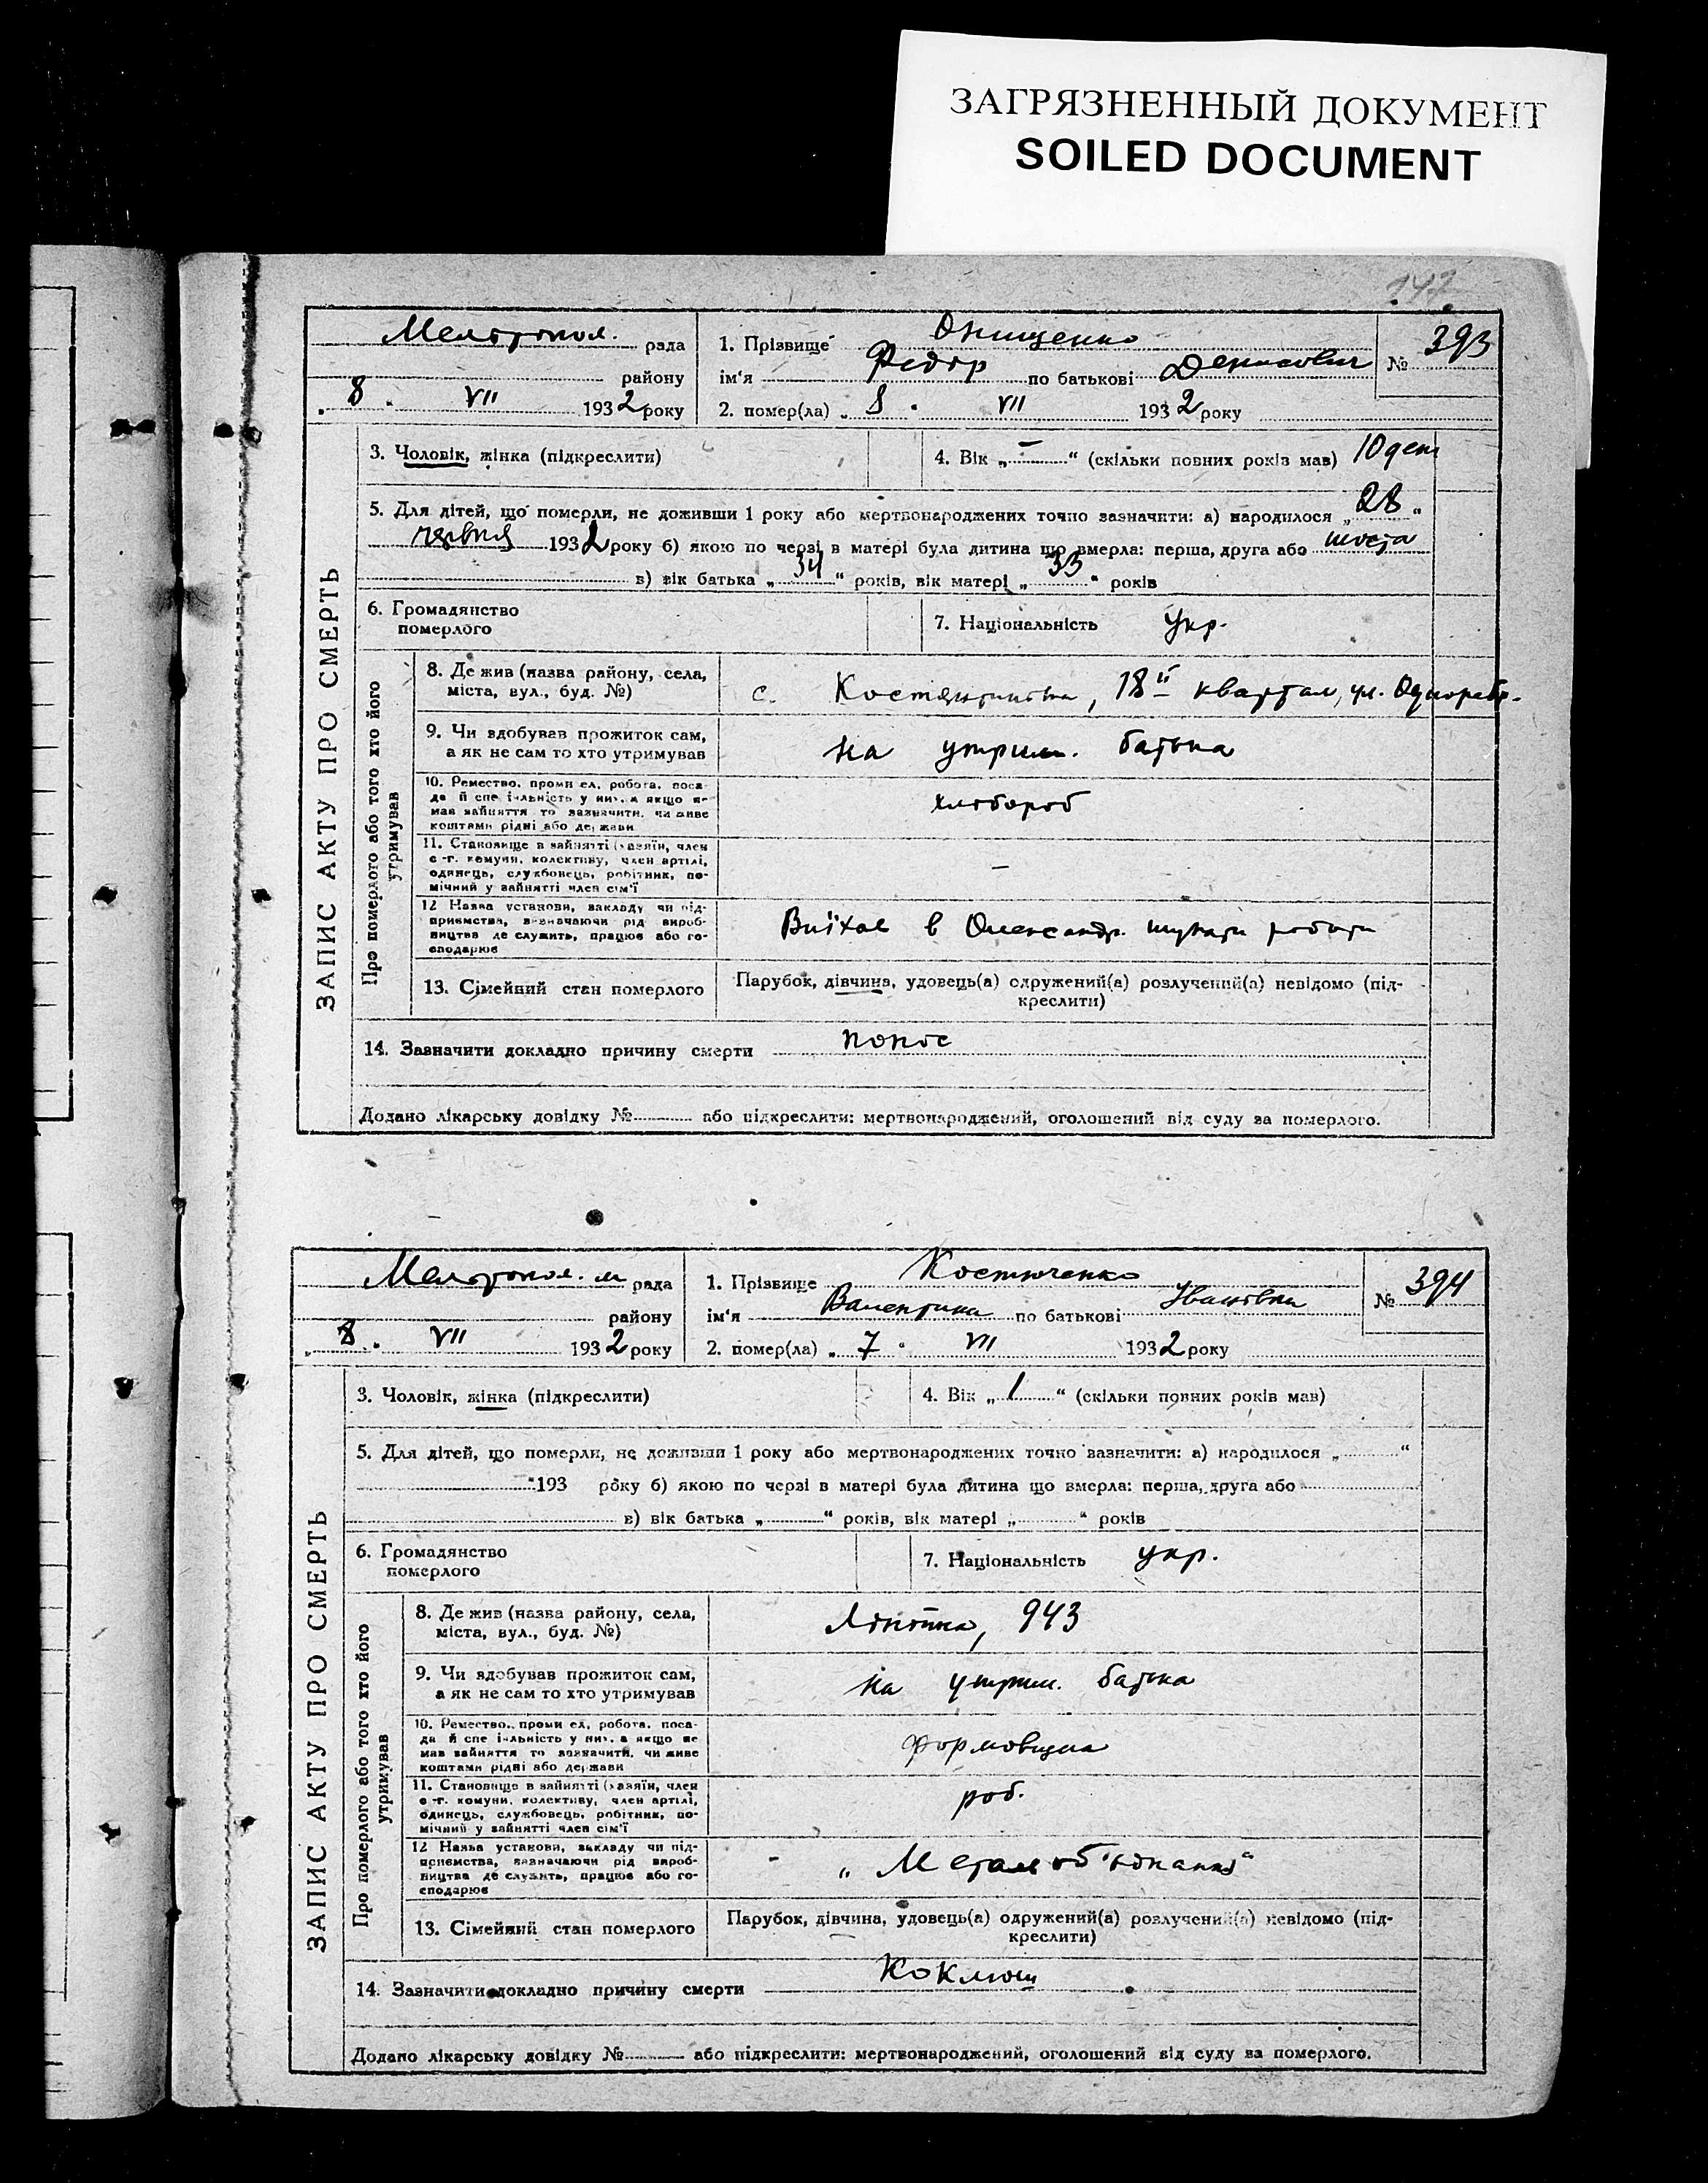 ЗАГРЯЗНЕННЫЙ ДОКУМЕНТ
SOILED DOCUMENT
147
ЗАПИС АКТУ ПРО СМЕРТЬ
Мелітопол. рада
району
„ 8 „ VII 1932 року
1. Прізвище Онищенко
ім'я Федор по батькові Денисович
№ 393
2. помер(ла) „ 8 " VII 1932 року
3. Чоловік, жінка (підкреслити)
4. Вік „ — " (скільки повних років мав) 10 ден
5. Для дітей, що померли, не доживши 1 року або мертвонароджених точно зазначити: а) народилося „ 28 "
червня 1932 року б) якою по черзі в матері була дитина що вмерла: перша, друга або шоста
в) вік батька „ 34 " років, вік матері „ 33 " років
6. Громадянство
померлого
7. Національність Укр.
Про померлого або того хто його
утримував
8. Де жив (назва району, села,
міста, вул., буд. №)
с. Костянтинівка, 18й квартал, ул.
9. Чи здобував прожиток сам,
а як не сам то хто утримував
на утрим. батька
10. Ремество, проми ел, робота, поса-
да й спе і альність у ни, а якщо не
мав зайняття то зазначити, чи живе
коштами рідні або держави
хлібороб
11. Становище в зайнятті (хазяїн, член
с-г. комуни, колективу, член артілі,
одинець, службовець, робітник, по-
мічний у зайнятті член сім'ї
—
12 Назва установи, закладу чи під-
приємства, визначаючи рід вироб-
ництва де служить, працює або го-
сподарює
Виїхав в Олександр. шукати роботи
13. Сімейний стан померлого
Парубок, дівчина, удовець(а) одружений(а) розлучений(а) невідомо (під-
креслити)
14. Зазначити докладно причину смерти понос
Додано лікарську довідку № або підкреслити: мертвонароджений, оголошений від суду за померлого.
ЗАПИС АКТУ ПРО СМЕРТЬ
Мелітопол. м рада
району
„ 8 „ VII 1932 року
1. Прізвище Костюченко
ім'я Валентина по батькові Іванівна
№ 394
2. помер(ла) „ 7 " VII 1932 року
3. Чоловік, жінка (підкреслити)
4. Вік „ 1 " (скільки повних років мав)
5. Для дітей, що померли, не доживши 1 року або мертвонароджених точно зазначити: а) народилося „ "
193 року б) якою по черзі в матері була дитина що вмерла: перша, друга або
в) вік батька „ " років, вік матері „ " років
6. Громадянство
померлого
7. Національність укр.
Про померлого або того хто його
утримував
8. Де жив (назва району, села,
міста, вул., буд. №)
943
9. Чи здобував прожиток сам,
а як не сам то хто утримував
на утрим. батька
10. Ремество, проми ел, робота, поса-
да й спе і альність у ни, а якщо не
мав зайняття то зазначити, чи живе
коштами рідні або держави
формовщик
11. Становище в зайнятті (хазяїн, член
с-г. комуни, колективу, член артілі,
одинець, службовець, робітник, по-
мічний у зайнятті член сім'ї
роб.
12 Назва установи, закладу чи під-
приємства, визначаючи рід вироб-
ництва де служить, працює або го-
сподарює
„Металоб'єднання"
13. Сімейний стан померлого
Парубок, дівчина, удовець(а) одружений(а) розлучений(а) невідомо (під-
креслити)
14. Зазначити докладно причину смерти Коклюш
Додано лікарську довідку № або підкреслити: мертвонароджений, оголошений від суду за померлого.